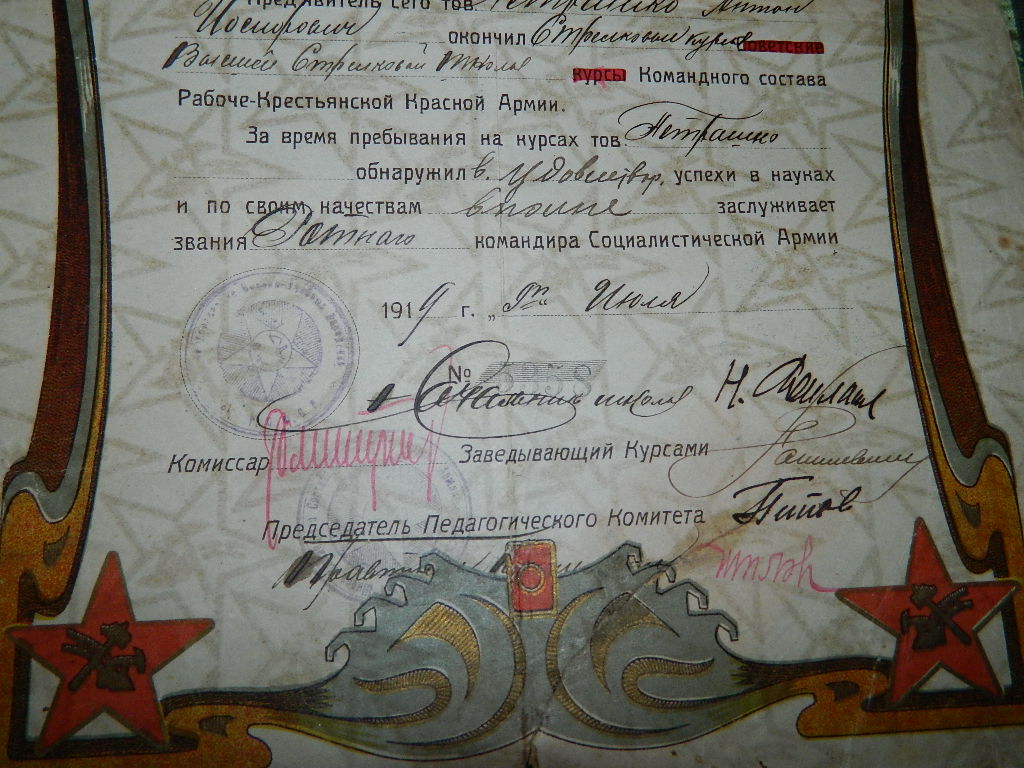 Предъявитель сего тов. Петрашко Антон
Иосифович окончил Стрелковый курсъ советские
Высшей Стрелковой Школы курсы Командного состава
Рабоче-Крестьянской Красной Армии.
За время пребывания на курсах тов. Петрашко
обнаружил в. удовлетвор. успехи в науках
и по своим качествам вполне заслуживает
звания Ротнаго командира Социалистической Армии
1919 г. „ Июля
№ 5358
Начальник школы Н.
Комиссар Заведывающий Курсами
Председатель Педагогического Комитета Титов